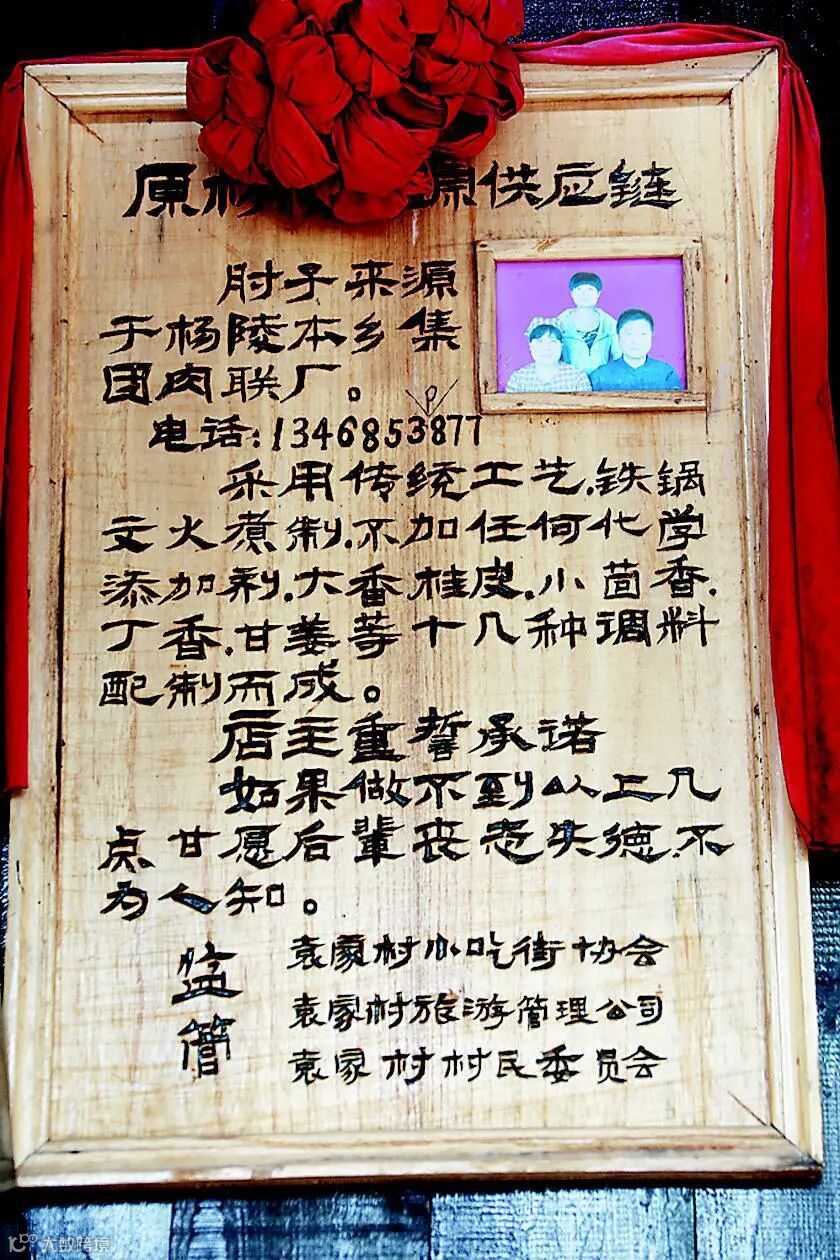 原材 源供应链
肘子来源
于杨陵本乡集
团肉联厂。
电话:1346853877
采用传统工艺.铁锅
文火煮制.不加任何化学
添加剂.大香桂皮.小茴香.
丁香.甘姜等十几种调料
配制而成。
店主重誓承诺
如果做不到以上几
点甘愿后辈丧志失德.不
为人知。
监管
袁家村小吃街协会
袁家村旅游管理公司
袁家村村民委员会
大数跨境